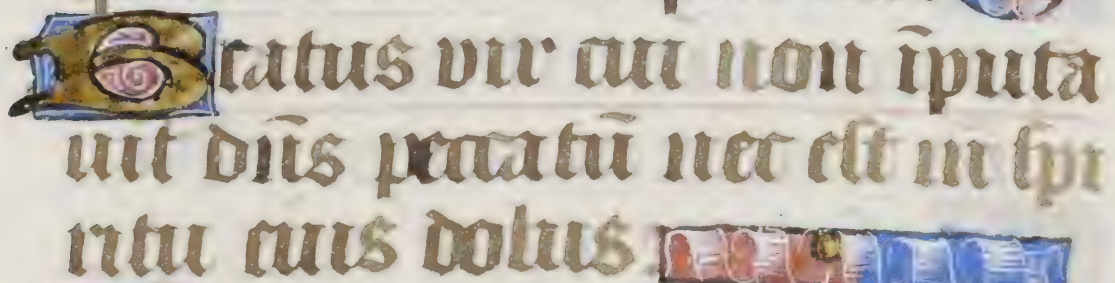 Beatus vir cui non īputa
uit dn̄s peccatū nec est in spi
ritu eius dolus